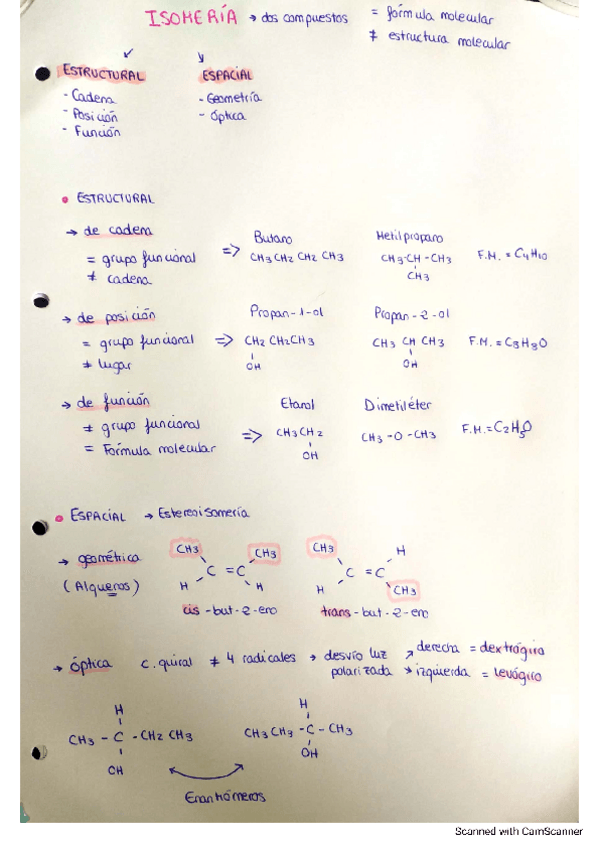 ISOMERÍA → dos compuestos = fórmula molecular
≠ estructura molecular
ESTRUCTURAL
- Cadena
- Posición
- Función
ESPACIAL
- Geometría
- Óptica
• ESTRUCTURAL
→ de cadena
= grupo funcional
≠ cadena
=>
Butano
CH3 CH2 CH2 CH3
Metilpropano
CH3-CH-CH3
CH3
F.M. = C4H10
→ de posición
= grupo funcional
≠ lugar
=>
Propan-1-ol
CH2 CH2CH3
OH
Propan-2-ol
CH3 CH CH3
OH
F.M. = C3H8O
→ de función
≠ grupo funcional
= Fórmula molecular
=>
Etanol
CH3CH2
OH
Dimetiléter
CH3-O-CH3
F.M. = C2H5O
• ESPACIAL → Estereoisomería
→ geométrica
(Alquenos)
CH3 CH3
C = C
H H
cis-but-2-eno
CH3 H
C = C
H CH3
trans-but-2-eno
→ óptica c. quiral ≠ 4 radicales → desvío luz polarizada
↗ derecha = dextrógiro
↘ izquierda = levógiro
H
CH3 - C - CH2 CH3
OH
H
CH3 CH2 - C - CH3
OH
Enantiómeros
Scanned with CamScanner